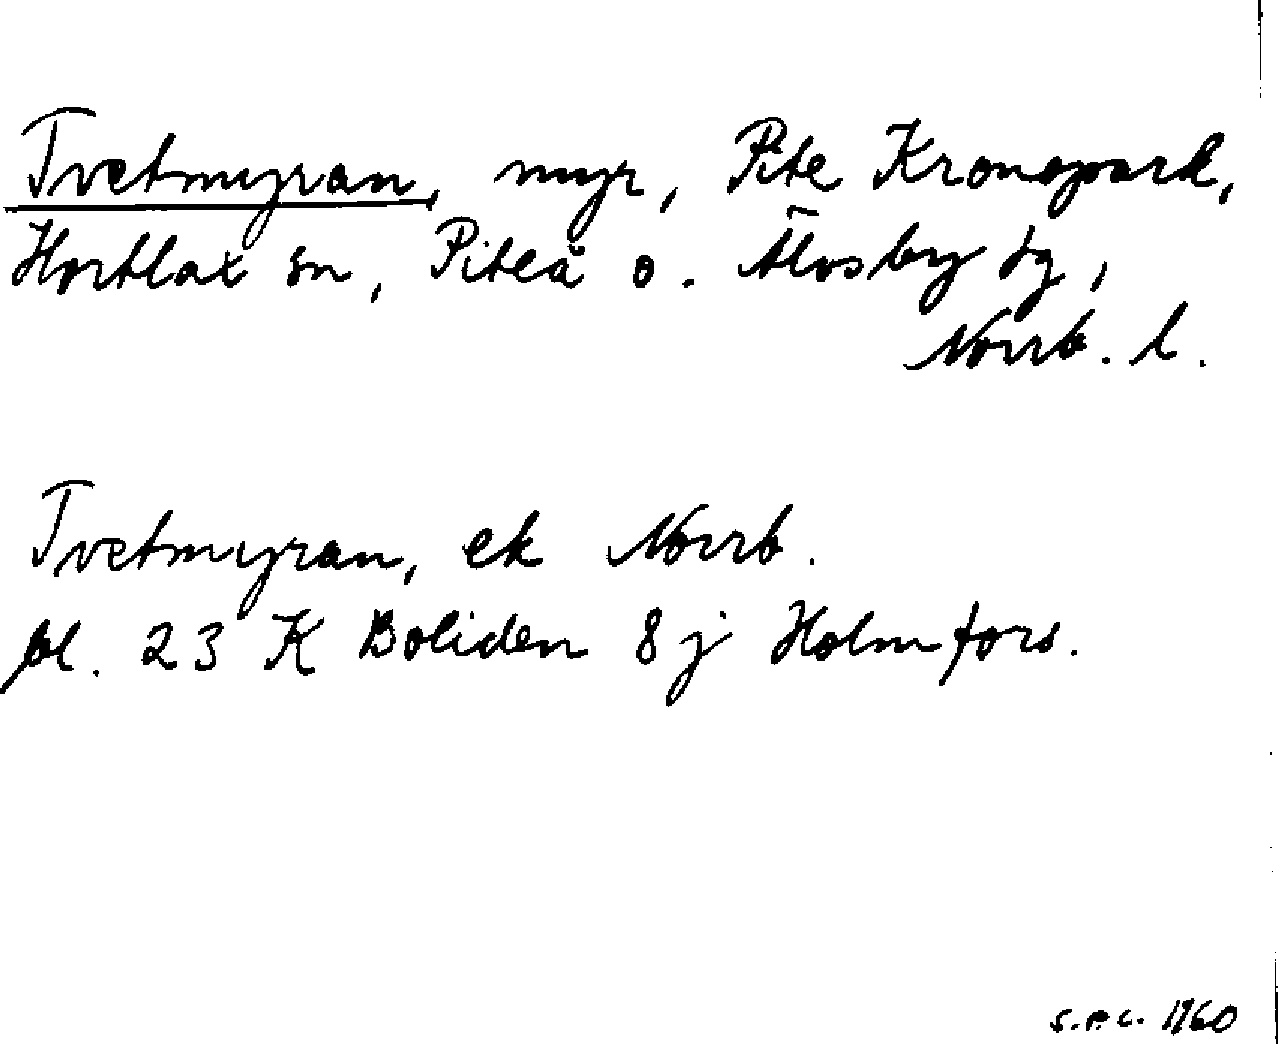 Tvetmyran, myr, Pite Kronopark,
Hortlax sn, Piteå o. Älvsby tg,
Norrb. l.
Tvetmyran, ek Norrb.
bl. 23 K Boliden 8 j Holmfors.
1960